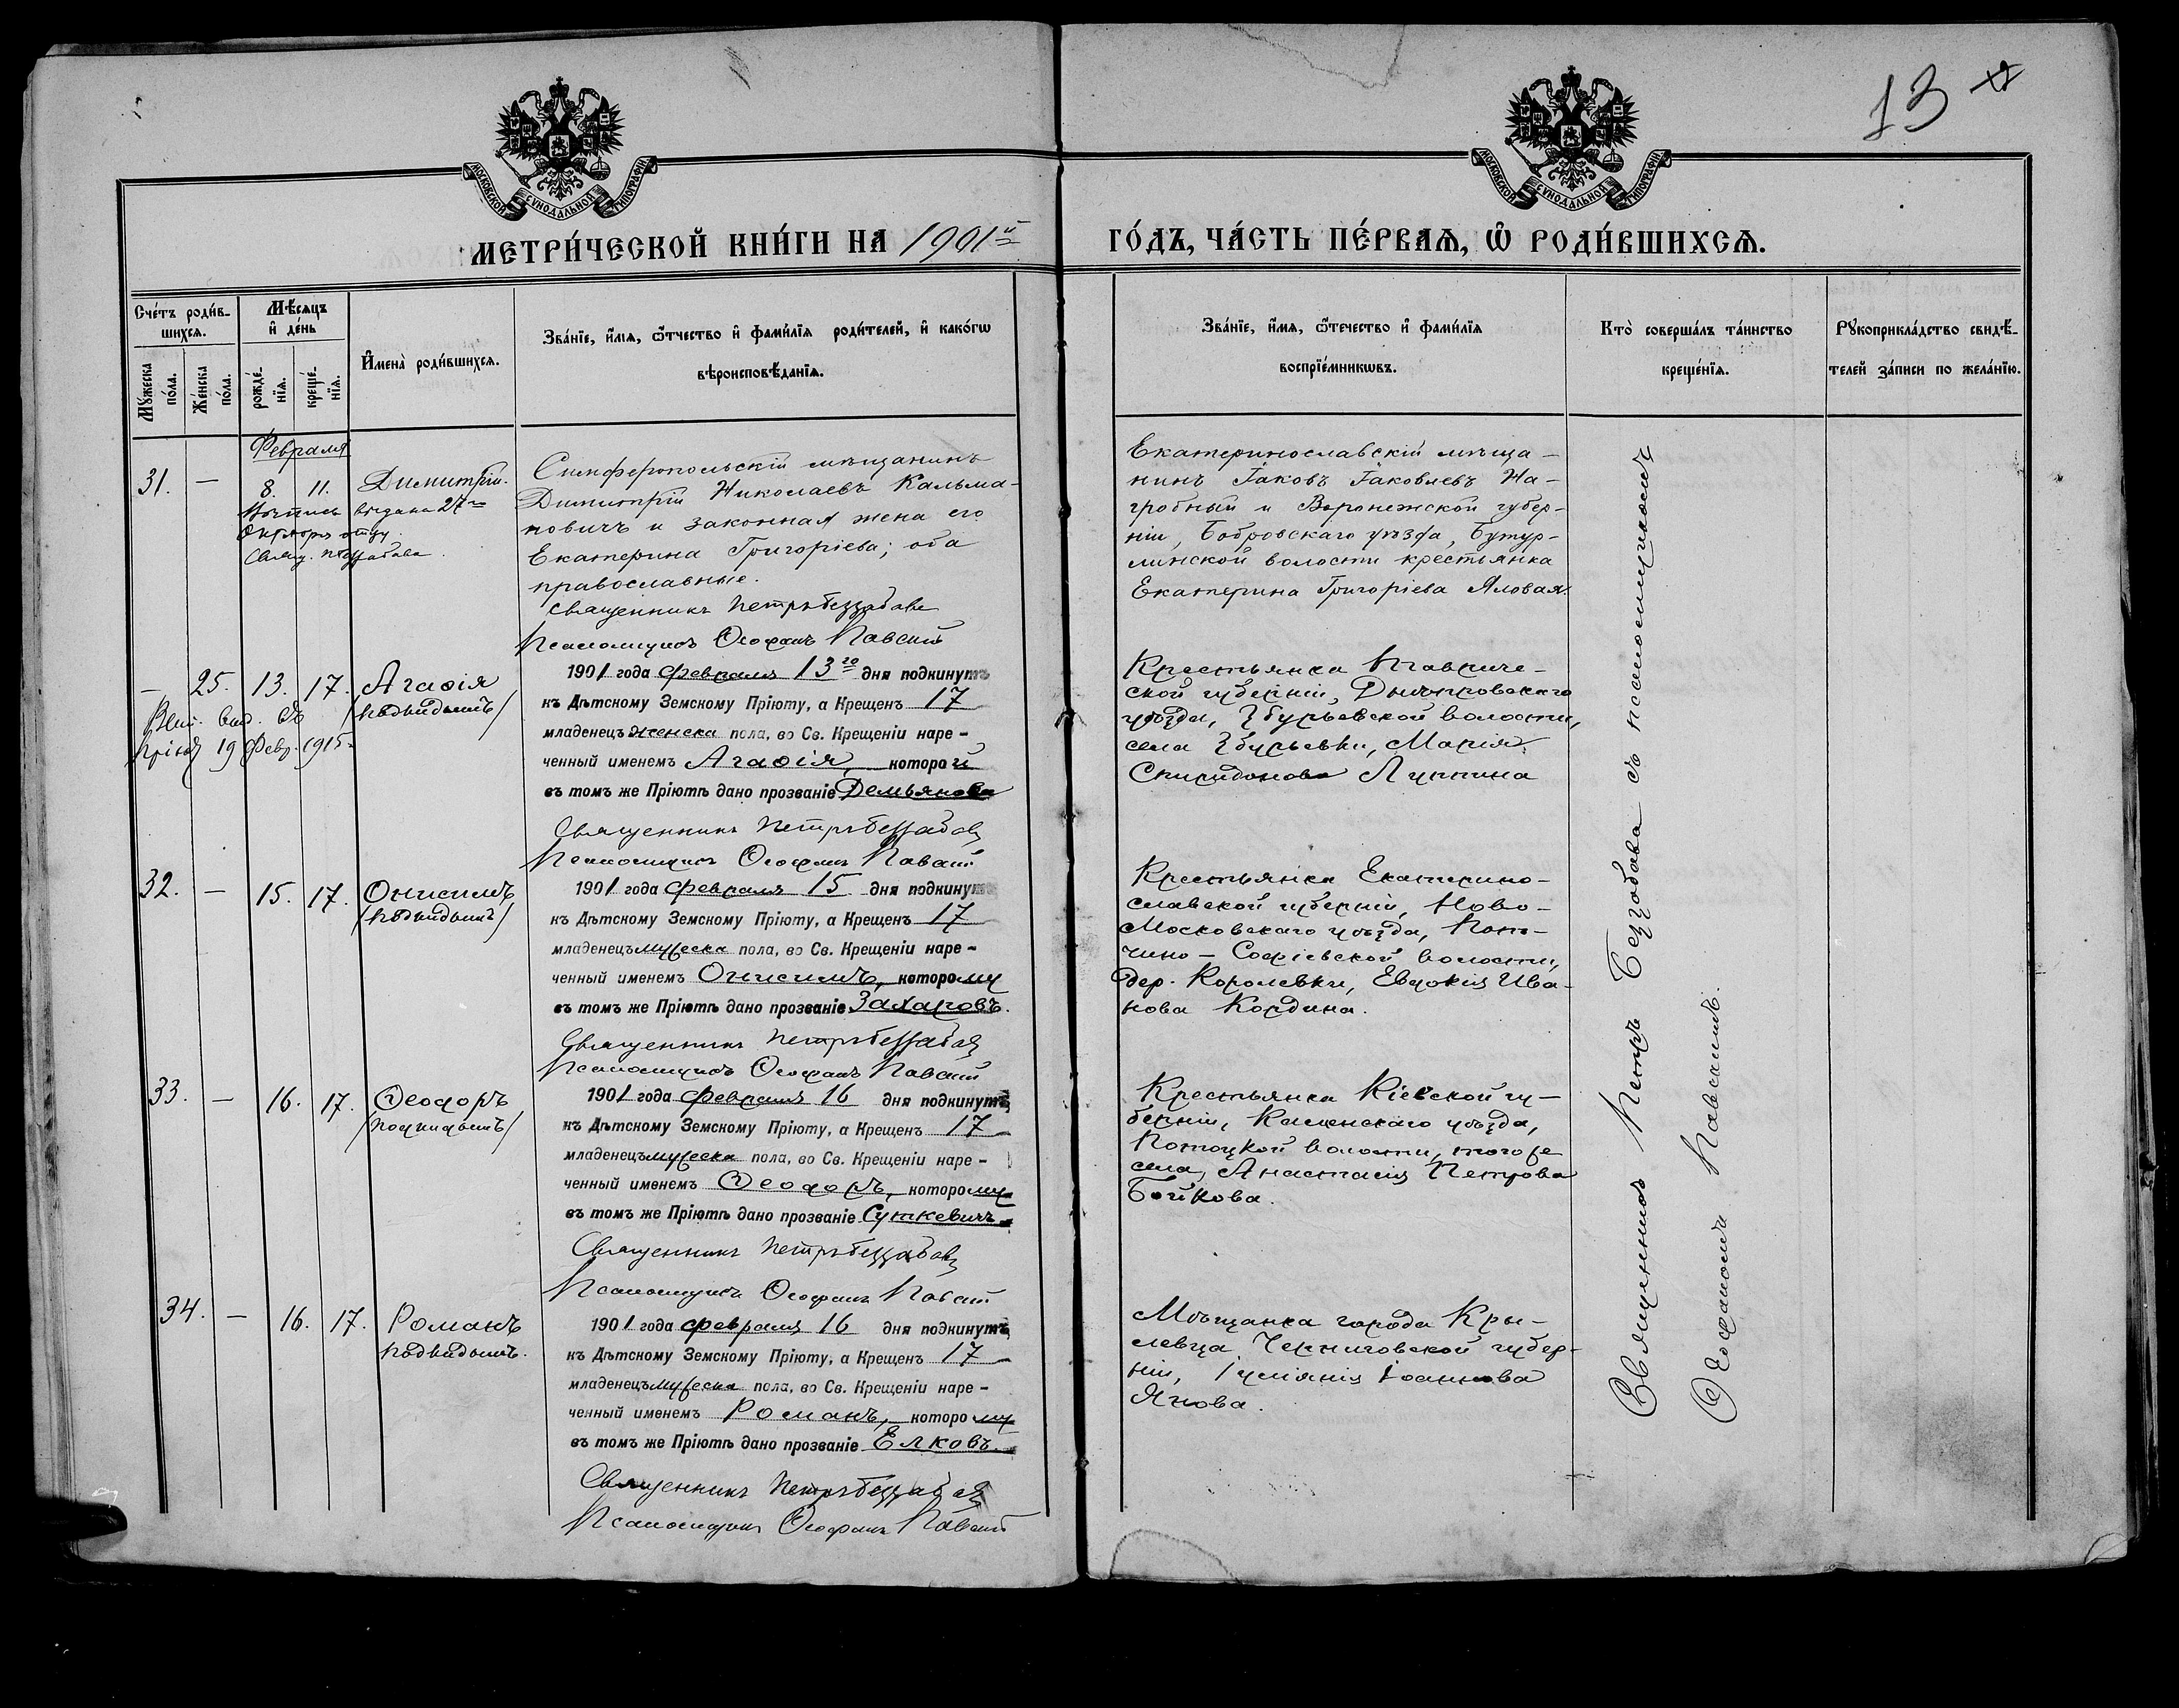 13
МОСКОВСКОЙ СѴНОДАЛЬНОЙ ТИПОГРАФІИ
МОСКОВСКОЙ СѴНОДАЛЬНОЙ ТИПОГРАФІИ
МЕТРИ́ЧЕСКОЙ КНИ́ГИ НА 1901й
ГО́ДЪ, ЧА́СТЬ ПЕ́РВАѦ, Ѽ РОДИ́ВШИХСѦ.
Счетъ роди́в-
шихсѧ.
Му́жеска по́ла.
Же́нска по́ла.
Мѣсѧцъ и де́нь
рожде́-нїѧ.
креще́-нїѧ.
Имена̀ роди́вшихсѧ.
Зва́нїе, и́мѧ, ѻ҆́тчество и фами́лїѧ роди́телей, и како́гѡ
вѣроисповѣ́данїѧ.
Зва́нїе, и́мѧ, ѻ҆́течество и фами́лїѧ
воспрїе́мникѡвъ.
Кто̀ соверша́лъ та́инство
креще́нїѧ.
Рꙋкоприкла́дство свидѣ́-
телей за́писи по жела́нїю.
Февраля
31. — 8. 11. Димитрій.
выдана 27го
Октября отцу.
Свящ.
Симферопольскій мѣщанинъ
Димитрій Николаевъ Кальма-
новичъ и законная жена его
Екатерина Григоріева; оба
православные.
Священникъ Петръ Беззабава
Псаломщикъ Ѳеофанъ Павскій
Екатеринославскій мѣща-
нинъ Іаковъ Іаковлевъ На-
гробный и Воронежской губер-
ніи, Бобровскаго уѣзда, Бутур-
линской волости крестьянка
Екатерина Григоріева Яловая.
— 25. 13. 17. Агаѳія
/подкидышъ/
19 Февр. 1915
1901 года Февраля 13го дня подкинутъ
къ Дѣтскому Земскому Пріюту, а Крещенъ 17
младенецъ женска пола, во Св. Крещеніи наре-
ченный именемъ Агаѳія, которой
въ томъ же Пріютѣ дано прозваніе Демьянова
Священникъ Петръ Беззабава
Псаломщикъ Ѳеофанъ Павскій
Крестьянка Тавриче-
ской губерніи, Днѣпровскаго
уѣзда, Збурьевской волости,
села Збурьевки, Марія
Спиридонова Луппина
32. — 15. 17. Онисимъ
/подкидышъ/
1901 года Февраля 15 дня подкинутъ
къ Дѣтскому Земскому Пріюту, а Крещенъ 17
младенецъ мужеска пола, во Св. Крещеніи наре-
ченный именемъ Онисимъ, которому
въ томъ же Пріютѣ дано прозваніе Захаровъ.
Священникъ Петръ Беззабава
Псаломщикъ Ѳеофанъ Павскій
Крестьянка Екатерино-
славской губерніи, Ново-
Московскаго уѣзда,
Софіевской волости,
дер. Королевки, Евдокія Ива-
нова Кордина.
33. — 16. 17. Ѳеодоръ
/подкидышъ/
1901 года Февраля 16 дня подкинутъ
къ Дѣтскому Земскому Пріюту, а Крещенъ 17
младенецъ мужеска пола, во Св. Крещеніи наре-
ченный именемъ Ѳеодоръ, которому
въ томъ же Пріютѣ дано прозваніе Суткевичъ
Священникъ Петръ Беззабава
Псаломщикъ Ѳеофанъ Павскій
Крестьянка Кіевской гу-
берніи, Каневскаго уѣзда,
Потоцкой волости, того же
села, Анастасія Петрова
Бойкова.
34. — 16. 17. Романъ
подкидышъ.
1901 года февраля 16 дня подкинутъ
къ Дѣтскому Земскому Пріюту, а Крещенъ 17
младенецъ мужеска пола, во Св. Крещеніи наре-
ченный именемъ Романъ, которому
въ томъ же Пріютѣ дано прозваніе Елковъ.
Священникъ Петръ Беззабава
Псаломщикъ Ѳеофанъ Павскій
Мѣщанка города Кры-
левца Черниговской губер-
ніи, Іуліанія Іоаннова
Янова.
Священникъ Петръ Беззабава съ псаломщикомъ
Ѳеофаномъ Павскимъ.